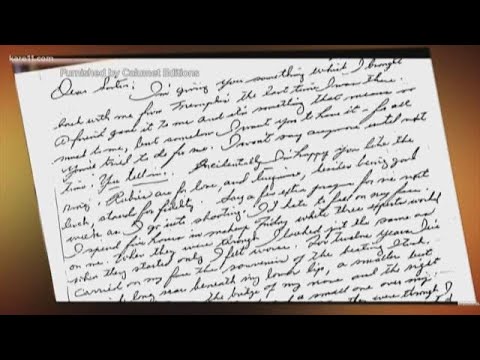 kare11.com
Furnished by Calumet Editions
Dear Sister; I'm giving you something which I brought
back with me from the last time I was there.
A friend gave it to me and it's something that means so
much to me, but somehow I want you to have it - for all
you've tried to do for me. I won't say anymore until next
time. You tell me. Incidentally I'm happy you like the
ring. Rubies are for love, and besides being good
luck, stands for fidelity. Say a few extra prayers for me next
week as I go into shooting. I hate to on my face.
I spend five hours in makeup Friday while three experts worked
on me. When they were through I looked just the same as
when they started only I felt worse. For twelve years I've
carried on my face the souvenir of the beating I took.
long scar beneath my lower lip, a smaller
the bridge of my nose and the right
a small one over my
they were through I